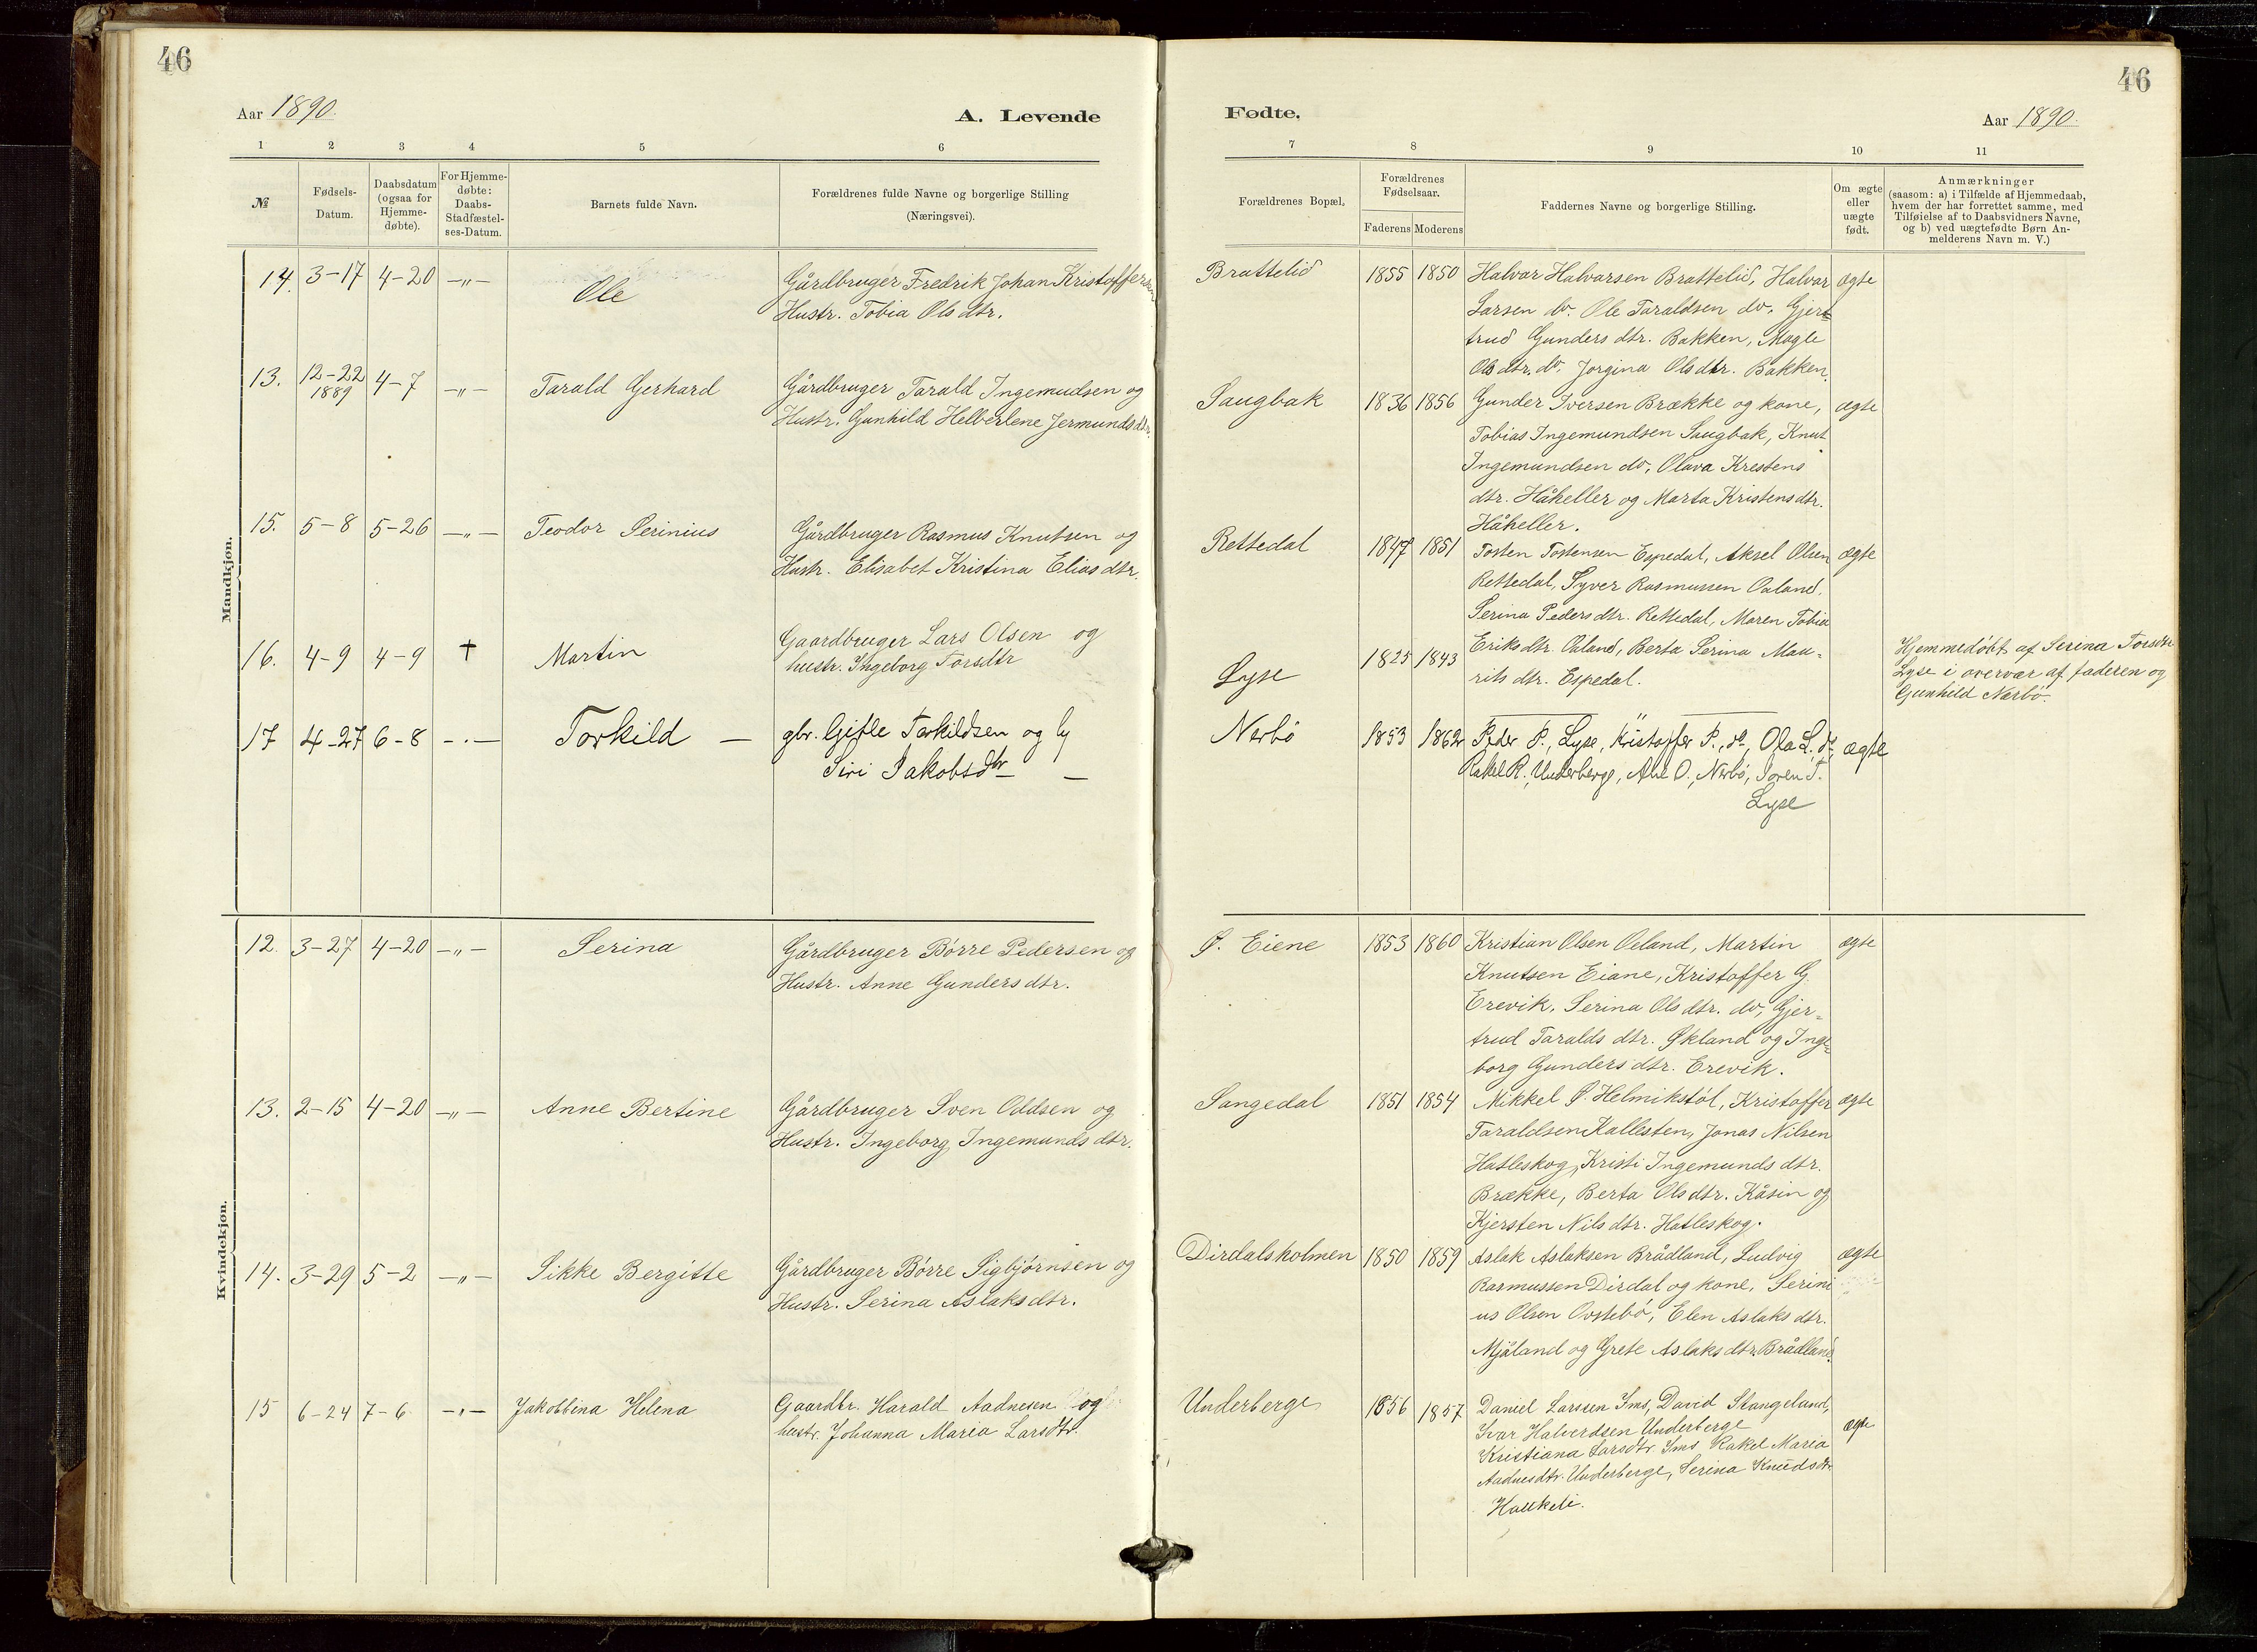 46
Aar 1890.
A. Levende
1 2 3 4 5 6
№
Fødsels-Datum.
Daabsdatum (ogsaa for Hjemme-døbte).
For Hjemme-døbte: Daabs-Stadfæstel-ses-Datum.
Barnets fulde Navn.
Forældrenes fulde Navne og borgerlige Stilling
(Næringsvei).
Mandkjøn.
14. 3-17 4-20 -„- Ole Gårdbruger Fredrik Johan Kristoffersen
Hustr. Tobia Olsdtr.
13. 12-22 1889 4-7 -„- Tarald Gerhard Gårdbruger Tarald Ingemudsen og
Hustr. Gunhild Helberlene Jermundsdtr.
15. 5-8 5-26 -„- Teodor Serinius Gårdbruger Rasmus Knutsen og
Hustr. Elisabet Kristina Eliasdtr.
16. 4-9 4-9 † Martin Gaardbruger Lars Olsen og
hustr. Ingeborg Torsdtr
17 4-27 6-8 -.- Torkild — gbr. Gitle Torkildsen og
Siri Jakobsdtr —
Kvindekjøn.
12. 3-27 4-20 -„- Serina Gårdbruger Børre Pedersen og
Hustr. Anne Gundersdtr.
13. 2-15 4-20 -„- Anne Bertine Gårdbruger Sven Oddsen og
Hustr. Ingeborg Ingemundsdtr.
14. 3-29 5-2 -„- Sikke Bergitte Gårdbruger Børre Sigbjørnsen og
Hustr. Serina Aslaksdtr.
15 6-24 7-6 -„- Jakobbina Helena Gaardbr. Harald Aadnesen og
hustr. Johanna Maria Larsdtr.
46
Fødte.
Aar 1890.
7 8 9 10 11
Forældrenes Bopæl.
Forældrenes Fødselsaar.
Faderens Moderens
Faddernes Navne og borgerlige Stilling.
Om ægte eller uægte født.
Anmærkninger
(saasom: a) i Tilfælde af Hjemmedaab,
hvem der har forrettet samme, med
Tilføielse af to Daabsvidners Navne,
og b) ved uægtefødte Børn An-
melderens Navn m. V.)
Brattelid 1855 1850 Halvor Halvorsen Brattelid, Halvor ægte
Larsen do. Ole Taraldsen do, Gjer-
trud Gundersdtr. Bakken, Magle
Olsdtr. do, Jorgina Olsdtr. Bakken.
Saugbak 1836 1856 Gunder Iversen Brække og kone, ægte
Tobias Ingemundsen Saugbak, Knut
Ingemundsen do, Olava Krestens
dtr. Håheller og Marta Kristensdtr.
Håheller.
Rettedal 1847 1851 Tosten Tostensen Espedal, Aksel Olsen ægte
Rettedal, Syver Rasmussen Oaland,
Serina Pedersdtr. Rettedal, Maren Tobia
Eriksdtr. Oaland, Berta Serina Mau-
rits dtr. Espedal.
Lyse 1825 1843
Hjemmedøbt af Serina Torsdtr
Lyse i overvær af faderen og
Gunhild Nærbø.
Nerbö 1853 1862 Peder P., Lyse, Kristoffer P., do, Ola L. do ægte
Rakel R., Underberge, Ahl O., Nerbö, Soren T.
Lyse
Ø. Eiene 1853 1860 Kristian Olsen Oeland, Martin ægte
Knutsen Eiane, Kristoffer G.
Erevik. Serina Olsdtr. do, Gjer-
trud Taraldsdtr. Økland og Inge-
borg Gundersdtr. Erevik.
Sangedal 1851 1854 Mikkel P. Helmikstöl, Kristoffer ægte
Taraldsen Kallesten, Jonas Nilsen
Hatleskog, Kristi Ingemundsdtr.
Brække, Berta Olsdtr. Kåsin og
Kjersten Nilsdtr. Hatleskog.
Dirdalsholmen 1850 1859 Aslak Aslaksen Brådland, Ludvig ægte
Rasmussen Dirdal og kone, Serini
us Olsen Ovstebö, Elen Aslaksdtr.
Mjåland og Grete Aslaksdtr. Brådland.
Underberge 1856 1857 Daniel Larssen Ims, David Stangeland,
Ivar Halvordsen Underberge ægte
Kristiana Larsdtr Ims Rakel Maria
Aadnesdtr. Underberge, Serina Knudsdtr.
Haukeli.